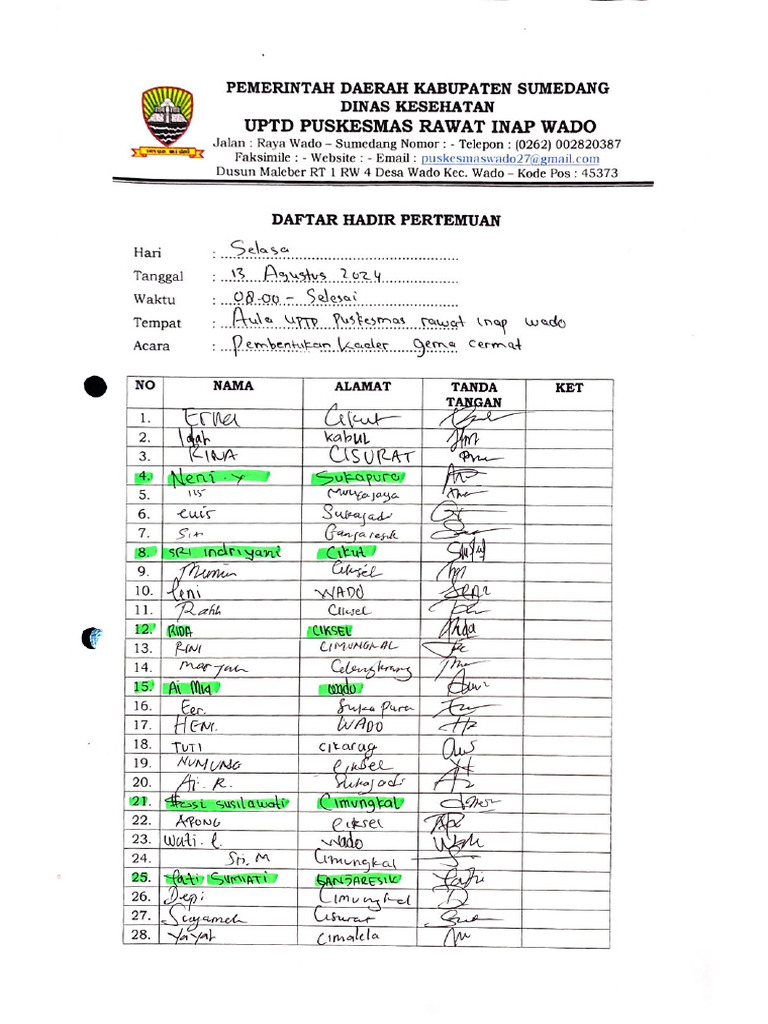 PEMERINTAH DAERAH KABUPATEN SUMEDANG
DINAS KESEHATAN
UPTD PUSKESMAS RAWAT INAP WADO
Jalan : Raya Wado – Sumedang Nomor : - Telepon : (0262) 002820387
Faksimile : - Website : - Email : puskesmaswado27@gmail.com
Dusun Maleber RT 1 RW 4 Desa Wado Kec. Wado – Kode Pos : 45373
DAFTAR HADIR PERTEMUAN
Hari : Selasa
Tanggal : 13 Agustus 2024
Waktu : 08.00 - Selesai
Tempat : Aula UPTD Puskesmas rawat inap wado
Acara : Pembentukan kader gema cermat
NO NAMA ALAMAT TANDA TANGAN KET
1. Erna Cikut
2. Idah Kabul
3. RINA CISURAT
4. Neni. y Sukapura
5. IIS Mulyajaya
6. euis Sukajadi
7. Siti Banjaresik
8. SRI indriyani Cikut
9. Mimin Ciksel
10. Leni WADO
11. Ciksel
12. RIDA CIKSEL
13. RINI CIMUNGKAL
14. maryah
15. Ai Mia wado
16. Eer. Sukapura
17. HENI. WADO
18. TUTI cikarag
19. NUMUNG Ciksel
20. Ai. R. Sukajadi
21. susilawati Cimungkal
22. APONG Ciksel
23. Wati. L. Wado
24. Sri. M Cimungkal
25. Tati SUMIATI BANJARESIK
26. Depi Cimungkal
27. Cisurat
28. Yayat Cimalela